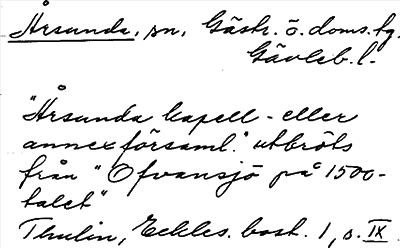 Årsunda, sn, Gästr. ö. doms. tg.
Gävleb. l.
"Årsunda kapell- eller
annexförsaml." utbröts
från "Ofvansjö på 1500-
talet"
Thulin, Eckles. bost. 1, s. IX